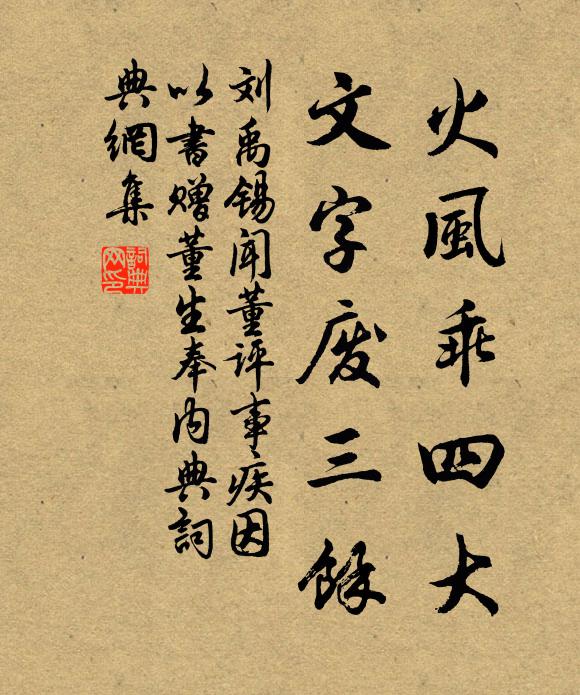 火風乖四大
文字废三餘
刘禹锡闻董评事疾因
以書赠董生奉内典詞
典網集
詞典网印